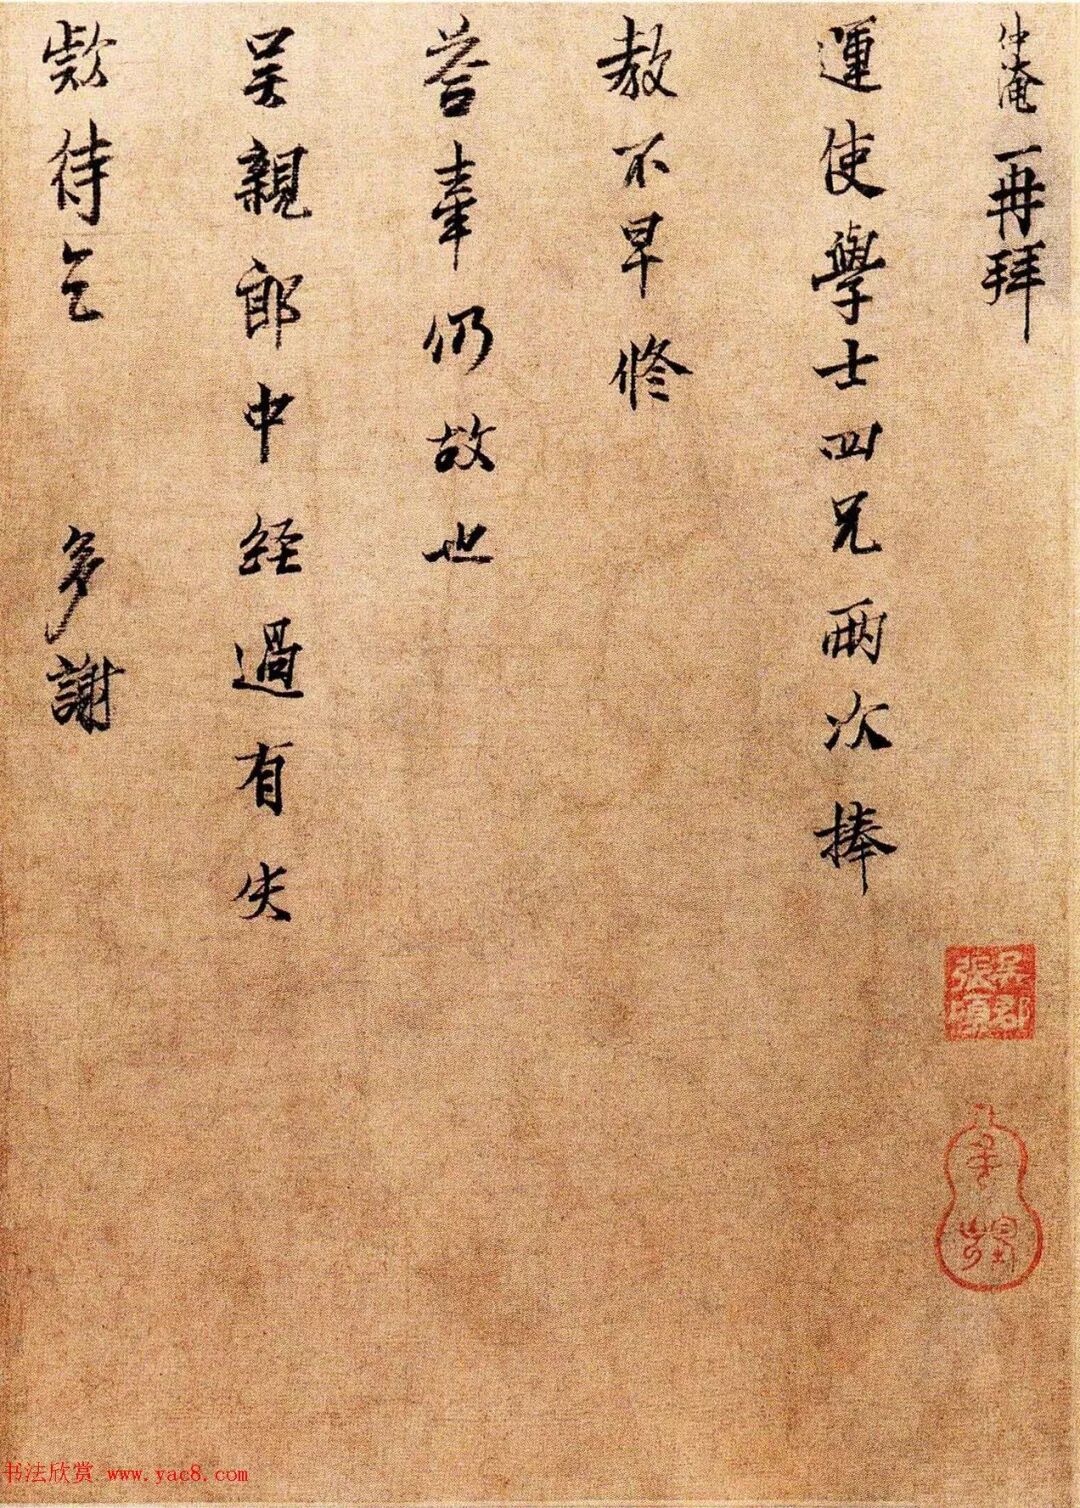 仲淹再拜
運使學士四兄兩次捧
教不早修
荅奉仍故也
吴親郎中經過有失
欵待乞 多謝
吴郡
張㒞
书法欣赏 www.yac8.com